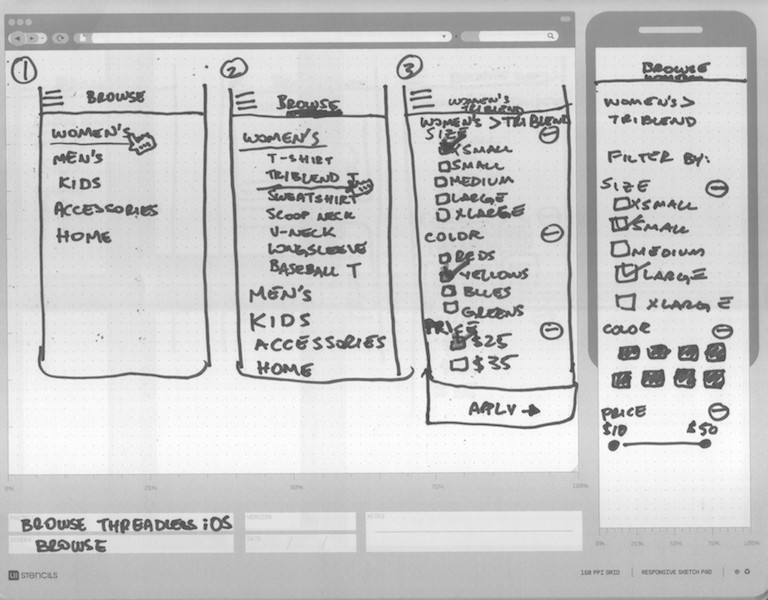 1
BROWSE
WOMEN'S
MEN'S
KIDS
ACCESSORIES
HOME
2
BROWSE
WOMEN'S
T-SHIRT
TRIBLEND T
SWEATSHIRT
SCOOP NECK
V-NECK
LONGSLEEVE
BASEBALL T
MEN'S
KIDS
ACCESSORIES
HOME
3
WOMEN'S
TRIBLEND
WOMEN'S > TRIBLEND
SIZE
XSMALL
SMALL
MEDIUM
LARGE
XLARGE
COLOR
REDS
YELLOWS
BLUES
GREENS
PRICE
$25
$35
APPLY →
BROWSE
WOMEN'S >
TRIBLEND
FILTER BY:
SIZE
XSMALL
SMALL
MEDIUM
LARGE
XLARGE
COLOR
PRICE
$10 $50
0% 25% 50% 75% 100%
0% 25% 50% 75% 100%
BROWSE THREADLESS iOS
BROWSE
VERSION
DATE
NOTES
UI STENCILS
160 PPI GRID
RESPONSIVE SKETCH PAD